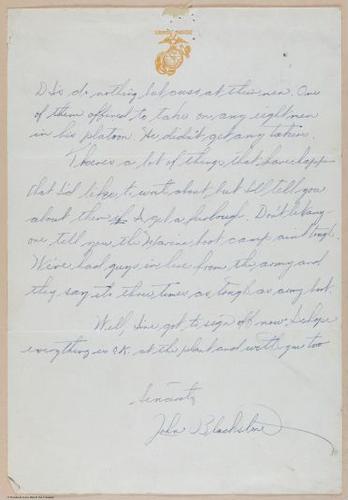 D.I.s do nothing but cuss at their men. One
of them offered to take on any eight men
in his platoon. He didn't get any takers.
There's a lot of things that have happ-
that I'd like to write about but I'll tell you
about them if I get a furlough. Don't let any-
one tell you the Marine boot camp ain't tough.
We've had guys in here from the army and
they say its three times as tough as army boot.
Well, I've got to sign off now. I hope
everything is O.K. at the plant and with you too
Sincerely
John Blackstone